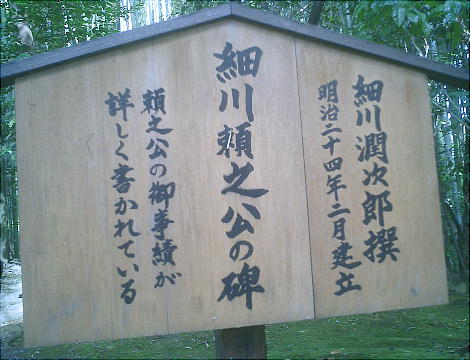 細川潤次郎撰
明治二十四年二月建立
細川頼之公の碑
頼之公の御事績が
詳しく書かれている